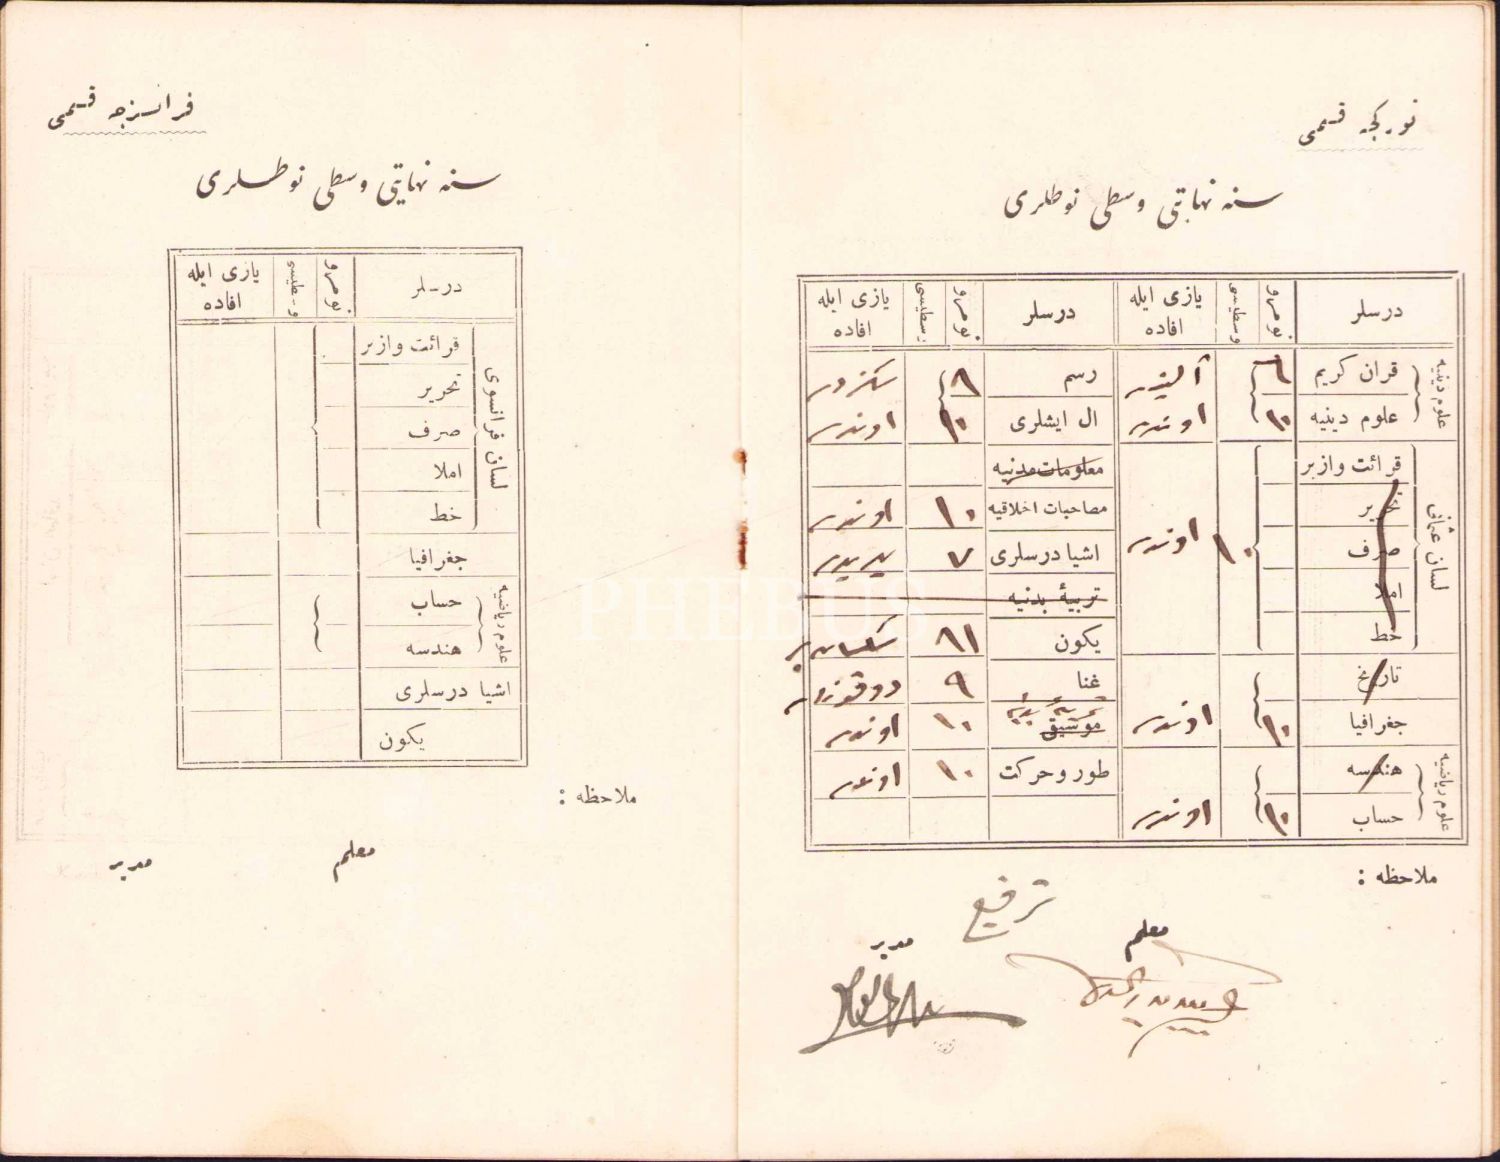 تورکجه قسمی
سنه نهایتی وسطی نوطلری
درسلر نومرو وسطیسی یازی ایله افاده درسلر نومرو وسطیسی یازی ایله افاده
علوم دینیه
قرآن کریم ٦ آلتیدر رسم ٨ سکزدر
علوم دینیه ١٠ اوندر ال ایشلری ١٠ اوندر
لسان عثمانی
قرائت و ازبر معلومات مدنیه
تحریر ١٠ اوندر مصاحبات اخلاقیه ١٠ اوندر
صرف اشیا درسلری ٧ یدیدر
املا تربیهٔ بدنیه
خط یکون ٨١ سکسان بر
تاریخ غنا ٩ دوقوزدر
جغرافیا ١٠ اوندر موسیقی ١٠ اوندر
علوم ریاضیه
هندسه طور و حرکت ١٠ اوندر
حساب ١٠ اوندر
ملاحظه :
ترفیع
معلم مدیر
فرانسزجه قسمی
سنه نهایتی وسطی نوطلری
درسلر نومرو وسطیسی یازی ایله افاده
لسان فرانسوی
قرائت و ازبر
تحریر
صرف
املا
خط
جغرافیا
علوم ریاضیه
حساب
هندسه
اشیا درسلری
یکون
ملاحظه :
معلم مدیر
PHEBUS